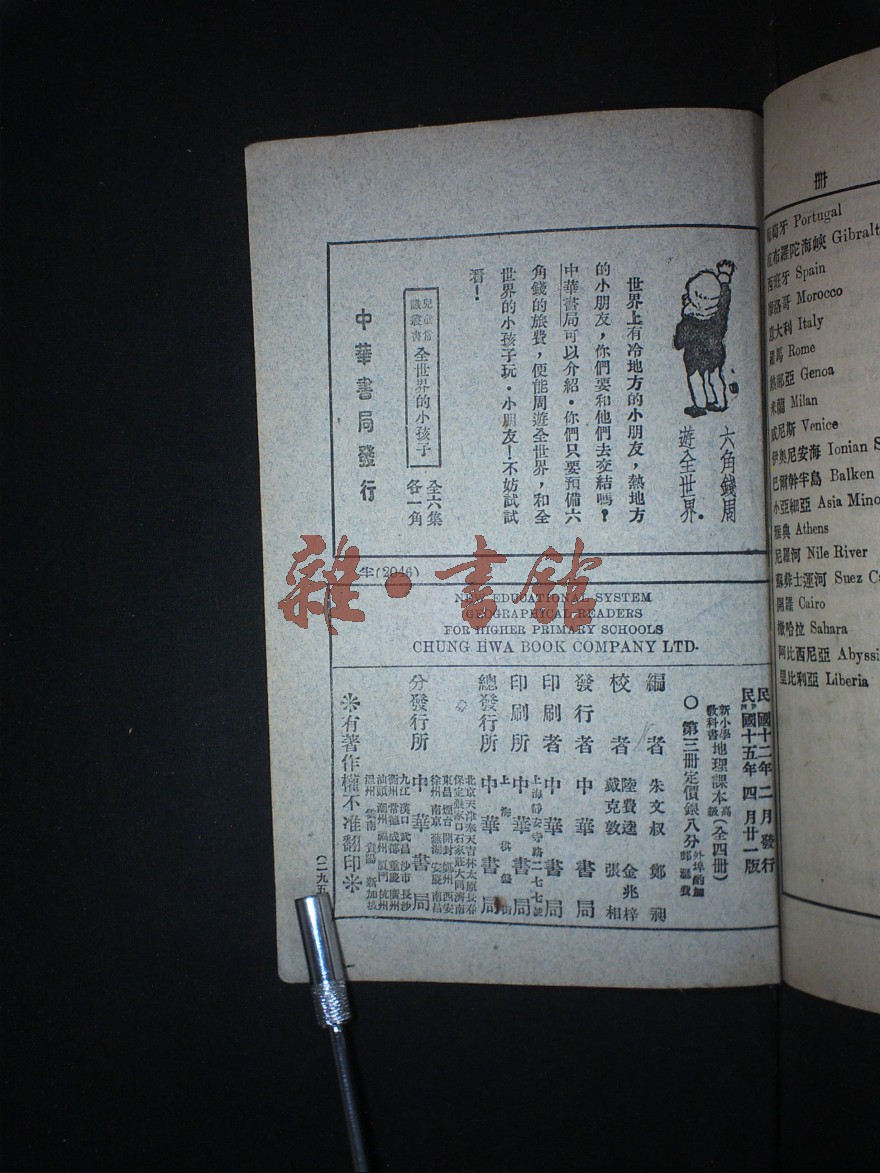 六角錢周
遊全世界．
世界上有冷地方的小朋友，熱地方
的小朋友，你們要和他們去交結嗎？
中華書局可以介紹．你們只要預備六
角錢的旅費，便能周遊全世界，和全
世界的小孩子玩．小朋友！不妨試試
看！
兒童常
識叢書
全世界的小孩子
全六集
各一角
中華書局發行
(2046)
NEW EDUCATIONAL SYSTEM
GEOGRAPHICAL READERS
FOR HIGHER PRIMARY SCHOOLS
CHUNG HWA BOOK COMPANY LTD.
民國十二年二月發行
民國十五年四月廿一版
新小學
教科書
地理課本
高級
(全四冊)
○第三冊定價銀八分
外埠酌加
郵匯費
編者 朱文叔 鄭昶
校者 陸費逵 金兆梓
戴克敦 張相
發行者 中華書局
印刷者 中華書局
上海靜安寺路二七七號
印刷所 中華書局
上海棋盤街
總發行所 中華書局
北京天津奉天吉林太原長春
保定張家口石家莊大同濟南
東昌煙台開封鄭州西安
徐州南京蕪湖安慶南昌
分發行所 中華書局
九江漢口武昌沙市長沙
衡州常德成都重慶廣州
汕頭潮州福州廈門杭州
溫州雲南貴陽新加坡
※有著作權不准翻印※
冊
葡萄牙 Portugal
直布羅陀海峽
西班牙 Spain
摩洛哥 Morocco
意大利 Italy
羅馬 Rome
熱那亞 Genoa
米蘭 Milan
威尼斯 Venice
伊奧尼安海 Ionian
巴爾幹半島 Balken
小亞細亞 Asia
雅典 Athens
尼羅河 Nile River
蘇彝士運河 Suez
開羅 Cairo
撒哈拉 Sahara
阿比西尼亞
里比利亞 Liberia
雜·書館